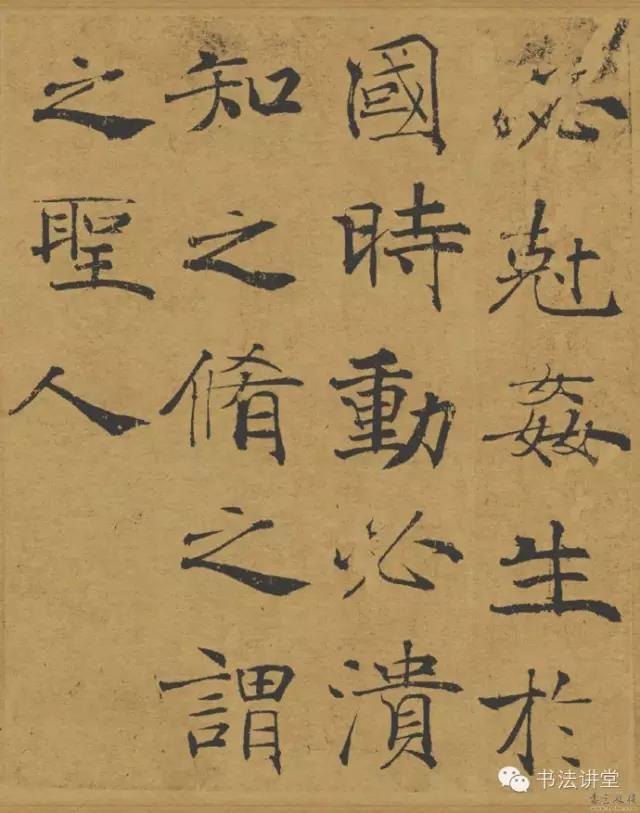 必尅姦生於
國時動必潰
知之脩之謂
之聖人
书法讲堂